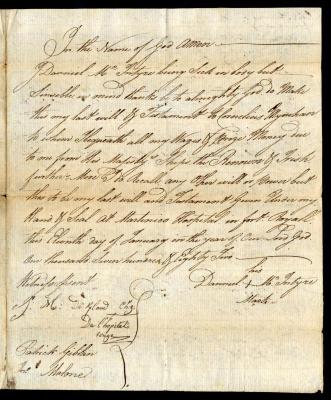 In the Name of God Amen
I Danniel Mc Intyre being Sick in body but
Sensible in mind thanks be to almighty God do Make
this my last will & Testament to Cornelius
to whom I bequeath all my Wages & Prize Money due
to me from His Majestys Ships the &
further More I do Recall any other will or Power but
this to be my last will and Testament Given Under my
Hand & Seal At Martinico Hospital in fort Royall
this Eleventh day of January in the year of Our Lord God
One thousand Seven hundred & Eighty two
his
Danniel + Mc Intyre
Mark
Witness present
Patrick
Malone